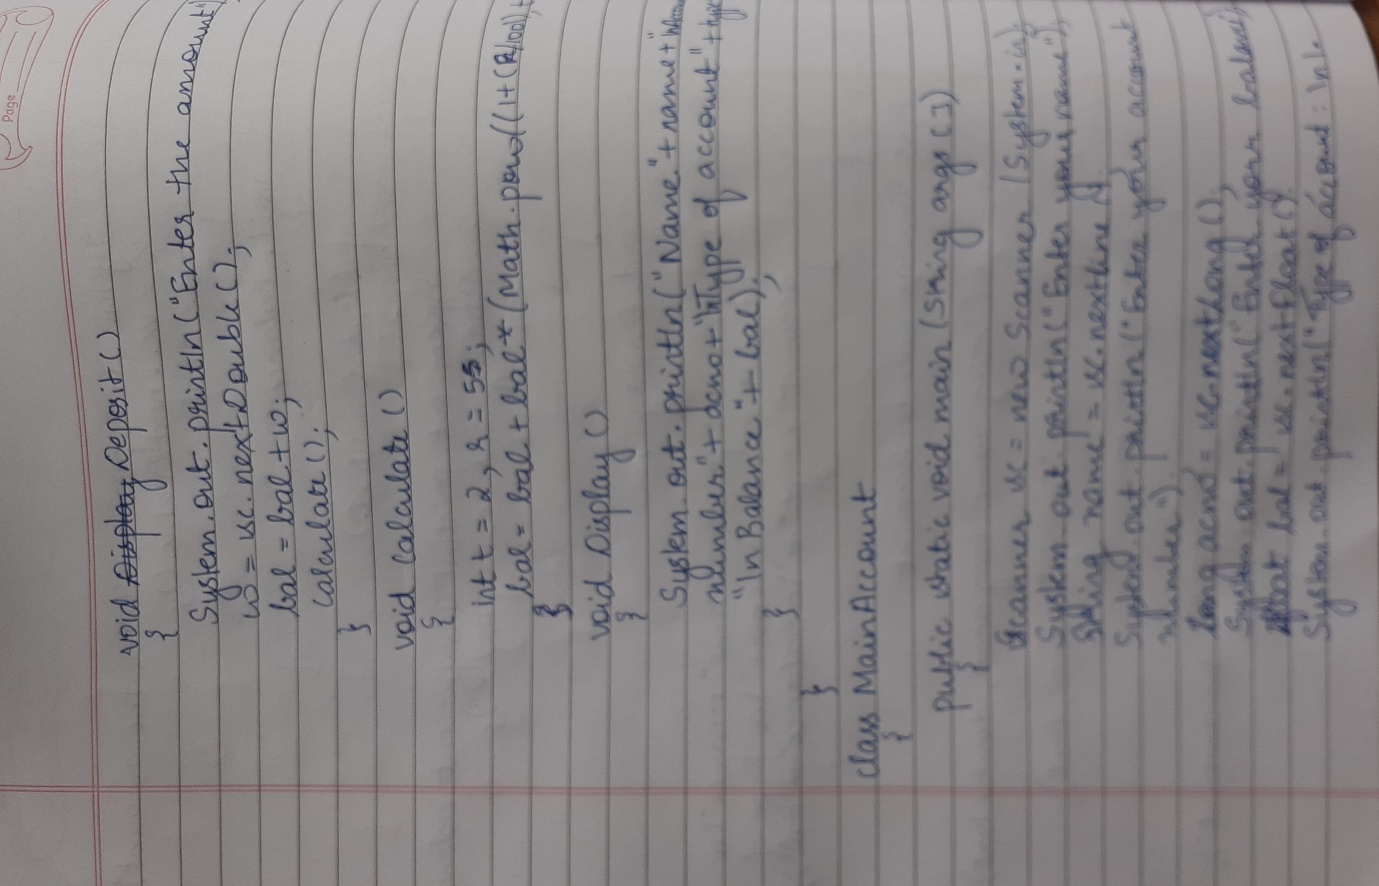 Page
void Deposit()
{
System.out.println("Enter the amount")
w = sc.nextDouble();
bal = bal + w;
calculate();
}
void calculate()
{
int t = 2, r = 5;
bal = bal + bal * (Math.pow((1+(R/100)),t
}
void Display()
{
System.out.println("Name"+name+"\n
number"+acno+"\nType of account"+type
"\nBalance"+bal);
}
}
class MainAccount
{
public static void main(String args[])
{
Scanner sc = new Scanner(System.in);
System.out.println("Enter your name");
String name = sc.nextLine();
System.out.println("Enter your account
number")
long acno = sc.nextLong();
System.out.println("Enter your balance");
float bal = sc.nextFloat();
System.out.println("Type of account: \n1.